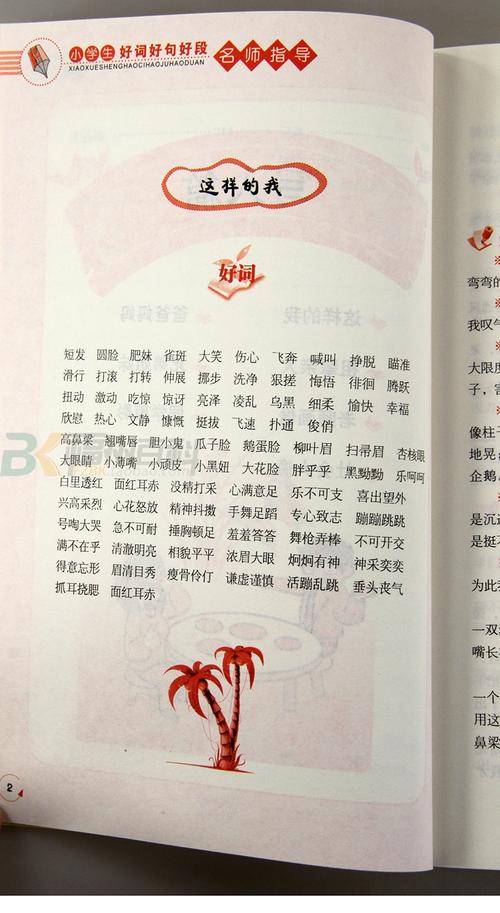 小学生好词好句好段 名师指导
XIAOXUESHENGHAOCIHAOJUHAODUAN
这样的我
好词
短发 圆脸 肥妹 雀斑 大笑 伤心 飞奔 喊叫 挣脱 瞄准
滑行 打滚 打转 伸展 挪步 洗净 狠搓 悔悟 徘徊 腾跃
扭动 激动 吃惊 惊讶 亮泽 凌乱 乌黑 细柔 愉快 幸福
欣慰 热心 文静 慷慨 挺拔 飞速 扑通 俊俏
高鼻梁 翘嘴唇 胆小鬼 瓜子脸 鹅蛋脸 柳叶眉 扫帚眉 杏核眼
大眼睛 小薄嘴 小顽皮 小黑妞 大花脸 胖乎乎 黑黝黝 乐呵呵
白里透红 面红耳赤 没精打采 心满意足 乐不可支 喜出望外
兴高采烈 心花怒放 精神抖擞 手舞足蹈 专心致志 蹦蹦跳跳
号啕大哭 急不可耐 捶胸顿足 羞羞答答 舞枪弄棒 不可开交
满不在乎 清澈明亮 相貌平平 浓眉大眼 炯炯有神 神采奕奕
得意忘形 眉清目秀 瘦骨伶仃 谦虚谨慎 活蹦乱跳 垂头丧气
抓耳挠腮 面红耳赤
2
弯弯的
我叹气
大限度
子，害
像柱子
地晃；
企鹅。
是沉迷
是挺不
为此我
一双
嘴长
一个
用这
鼻梁